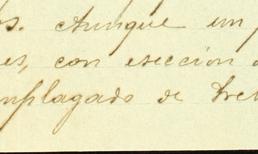 s. Aunque un
es, con esección
mplagado de